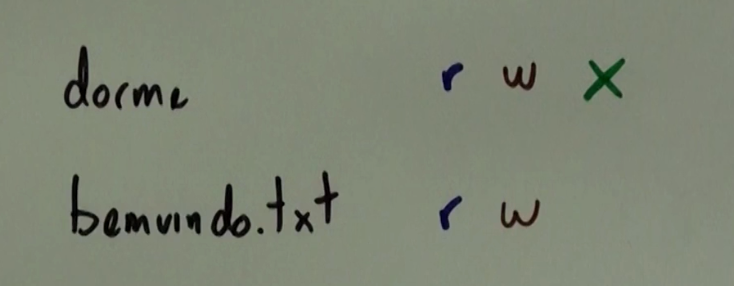 dorme r w x
bemvindo.txt r w